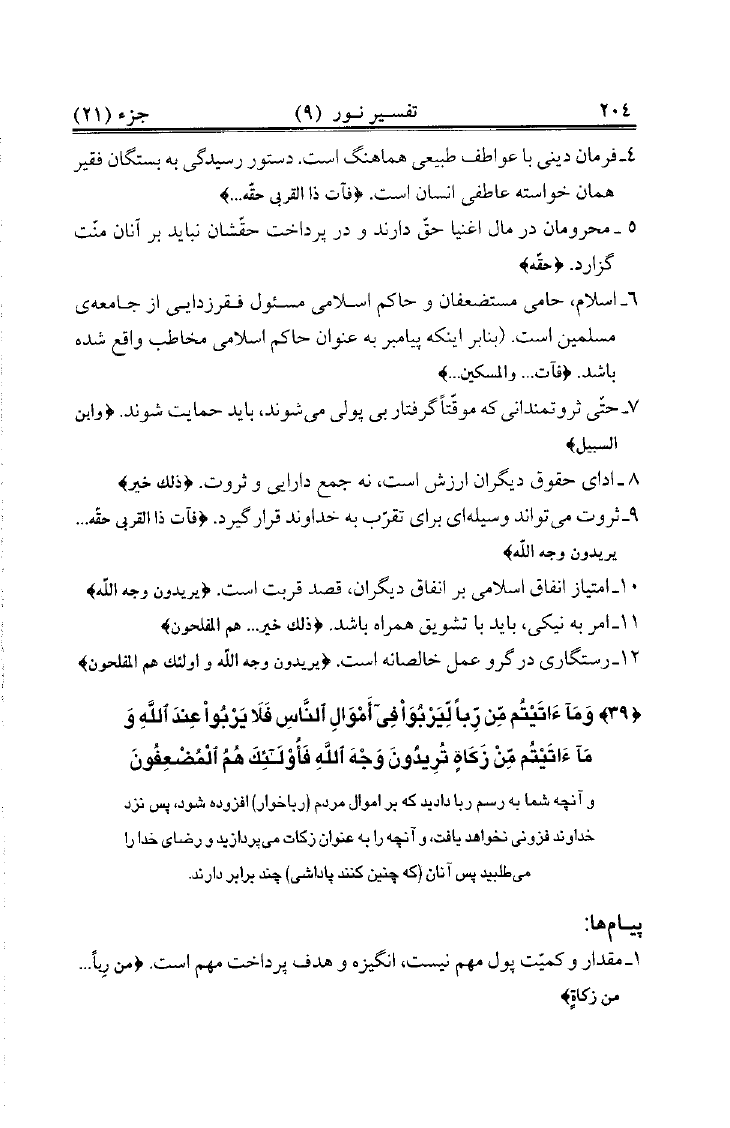 ٢٠٤ تفسیر نور (٩) جزء (٢١)
٤ـ فرمان دینی با عواطف طبیعی هماهنگ است. دستور رسیدگی به بستگان فقیر
همان خواسته عاطفی انسان است. ﴿فآت ذا القربی حقّه...﴾
٥ ـ محرومان در مال اغنیا حقّ دارند و در پرداخت حقّشان نباید بر آنان منّت
گزارد. ﴿حقّه﴾
٦ـ اسلام، حامی مستضعفان و حاکم اسلامی مسئول فقرزدایی از جامعه‌ی
مسلمین است. (بنابر اینکه پیامبر به عنوان حاکم اسلامی مخاطب واقع شده
باشد. ﴿فآت... والمسکین...﴾
٧ـ حتّی ثروتمندانی که موقّتاً گرفتار بی پولی می‌شوند، باید حمایت شوند. ﴿وابن
السبیل﴾
٨ ـ ادای حقوق دیگران ارزش است، نه جمع دارایی و ثروت. ﴿ذلك خیر﴾
٩ـ ثروت می‌تواند وسیله‌ای برای تقرّب به خداوند قرار گیرد. ﴿فآت ذا القربی حقّه...
یریدون وجه اللّه﴾
١٠ـ امتیاز انفاق اسلامی بر انفاق دیگران، قصد قربت است. ﴿یریدون وجه اللّه﴾
١١ـ امر به نیکی، باید با تشویق همراه باشد. ﴿ذلك خیر... هم المفلحون﴾
١٢ـ رستگاری در گرو عمل خالصانه است. ﴿یریدون وجه اللّه و اولئك هم المفلحون﴾
﴿٣٩﴾ وَمَآ ءَاتَيْتُم مِّن رِّباً لِّيَرْبُوَاْ فِىٓ أَمْوَالِ ٱلنَّاسِ فَلَا يَرْبُواْ عِندَ ٱللَّهِ وَ
مَآ ءَاتَيْتُم مِّنْ زَكَاةٍ تُرِيدُونَ وَجْهَ ٱللَّهِ فَأُوْلَـٰٓئِكَ هُمُ ٱلْمُضْعِفُونَ
و آنچه شما به رسم ربا دادید که بر اموال مردم (رباخوار) افزوده شود، پس نزد
خداوند فزونی نخواهد یافت، و آنچه را به عنوان زکات می‌پردازید و رضای خدا را
می‌طلبید پس آنان (که چنین کنند پاداشی) چند برابر دارند.
پیام‌ها:
١ـ مقدار و کمیّت پول مهم نیست، انگیزه و هدف پرداخت مهم است. ﴿من رباً...
من زکاةٍ﴾